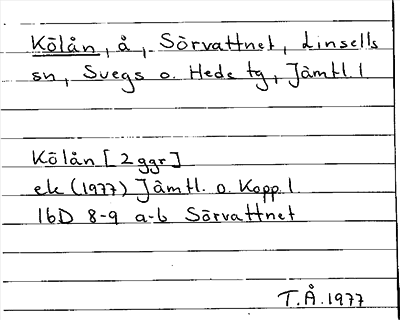 Kölån, å, Sörvattnet, Linsells
sn, Svegs o. Hede tg, Jämtl. l
Kölån [2 ggr]
ek (1977) Jämtl. o. Kopp. l
16D 8-9 a-b Sörvattnet
T.Å. 1977